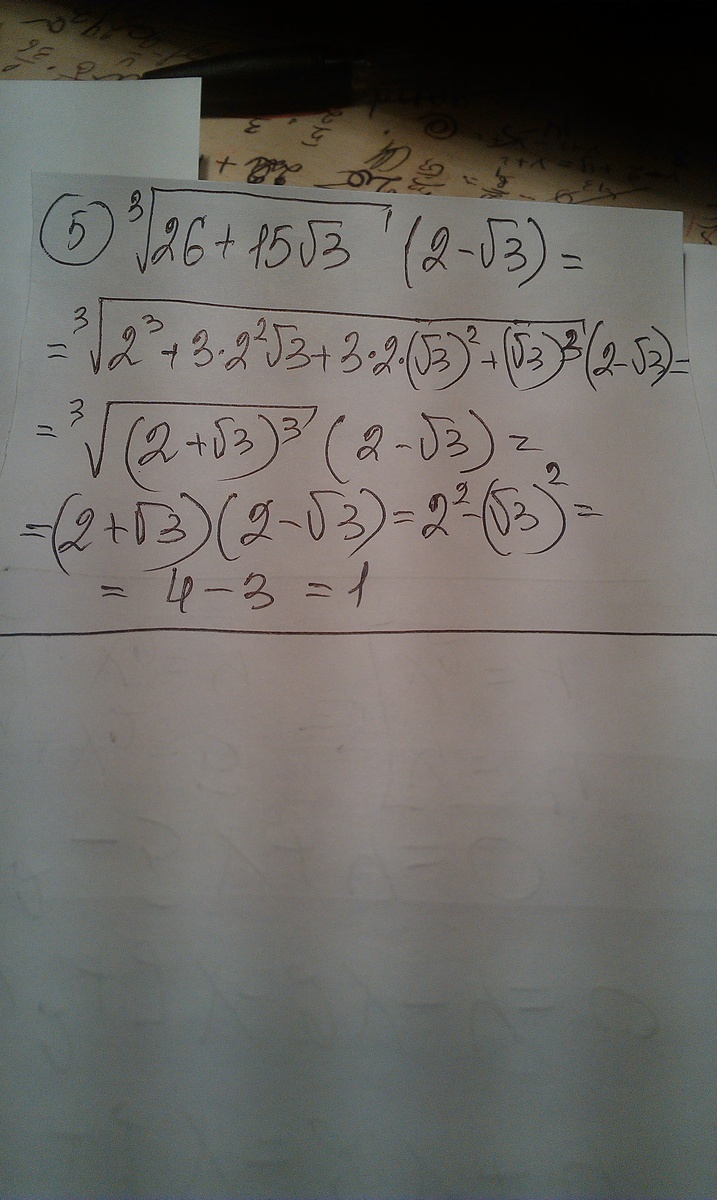 5 ∛(26+15√3) (2-√3) =
= ∛(2³+3·2²√3+3·2·(√3)²+(√3)³) (2-√3) =
= ∛((2+√3)³) (2-√3) =
= (2+√3)(2-√3) = 2²-(√3)² =
= 4-3 = 1